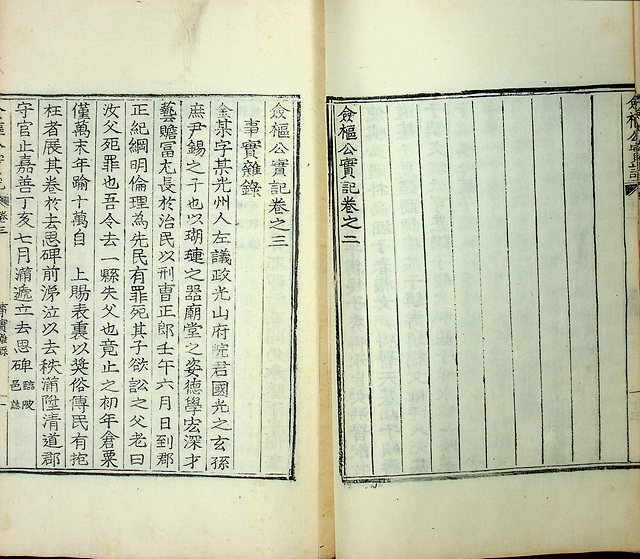 僉樞公實記卷之二
僉樞公實記卷之三
事實雜錄
金某字某光州人左議政光山府院君國光之玄孫
庶尹錫之子也以瑚璉之器廟堂之姿德學宏深才
藝贍富尤長於治民以刑曹正郎壬午六月日到郡
正紀綱明倫理為先民有罪死其子欲訟之父老曰
汝父死罪也吾令去一縣失父也竟止之初年倉粟
僅萬末年踰十萬自 上賜表裏以奬俗傳民有抱
枉者展其卷於去思碑前涕泣以去秩滿陞清道郡
守官止嘉善丁亥七月滿遞立去思碑 臨陂邑誌
卷三
事實雜錄
一